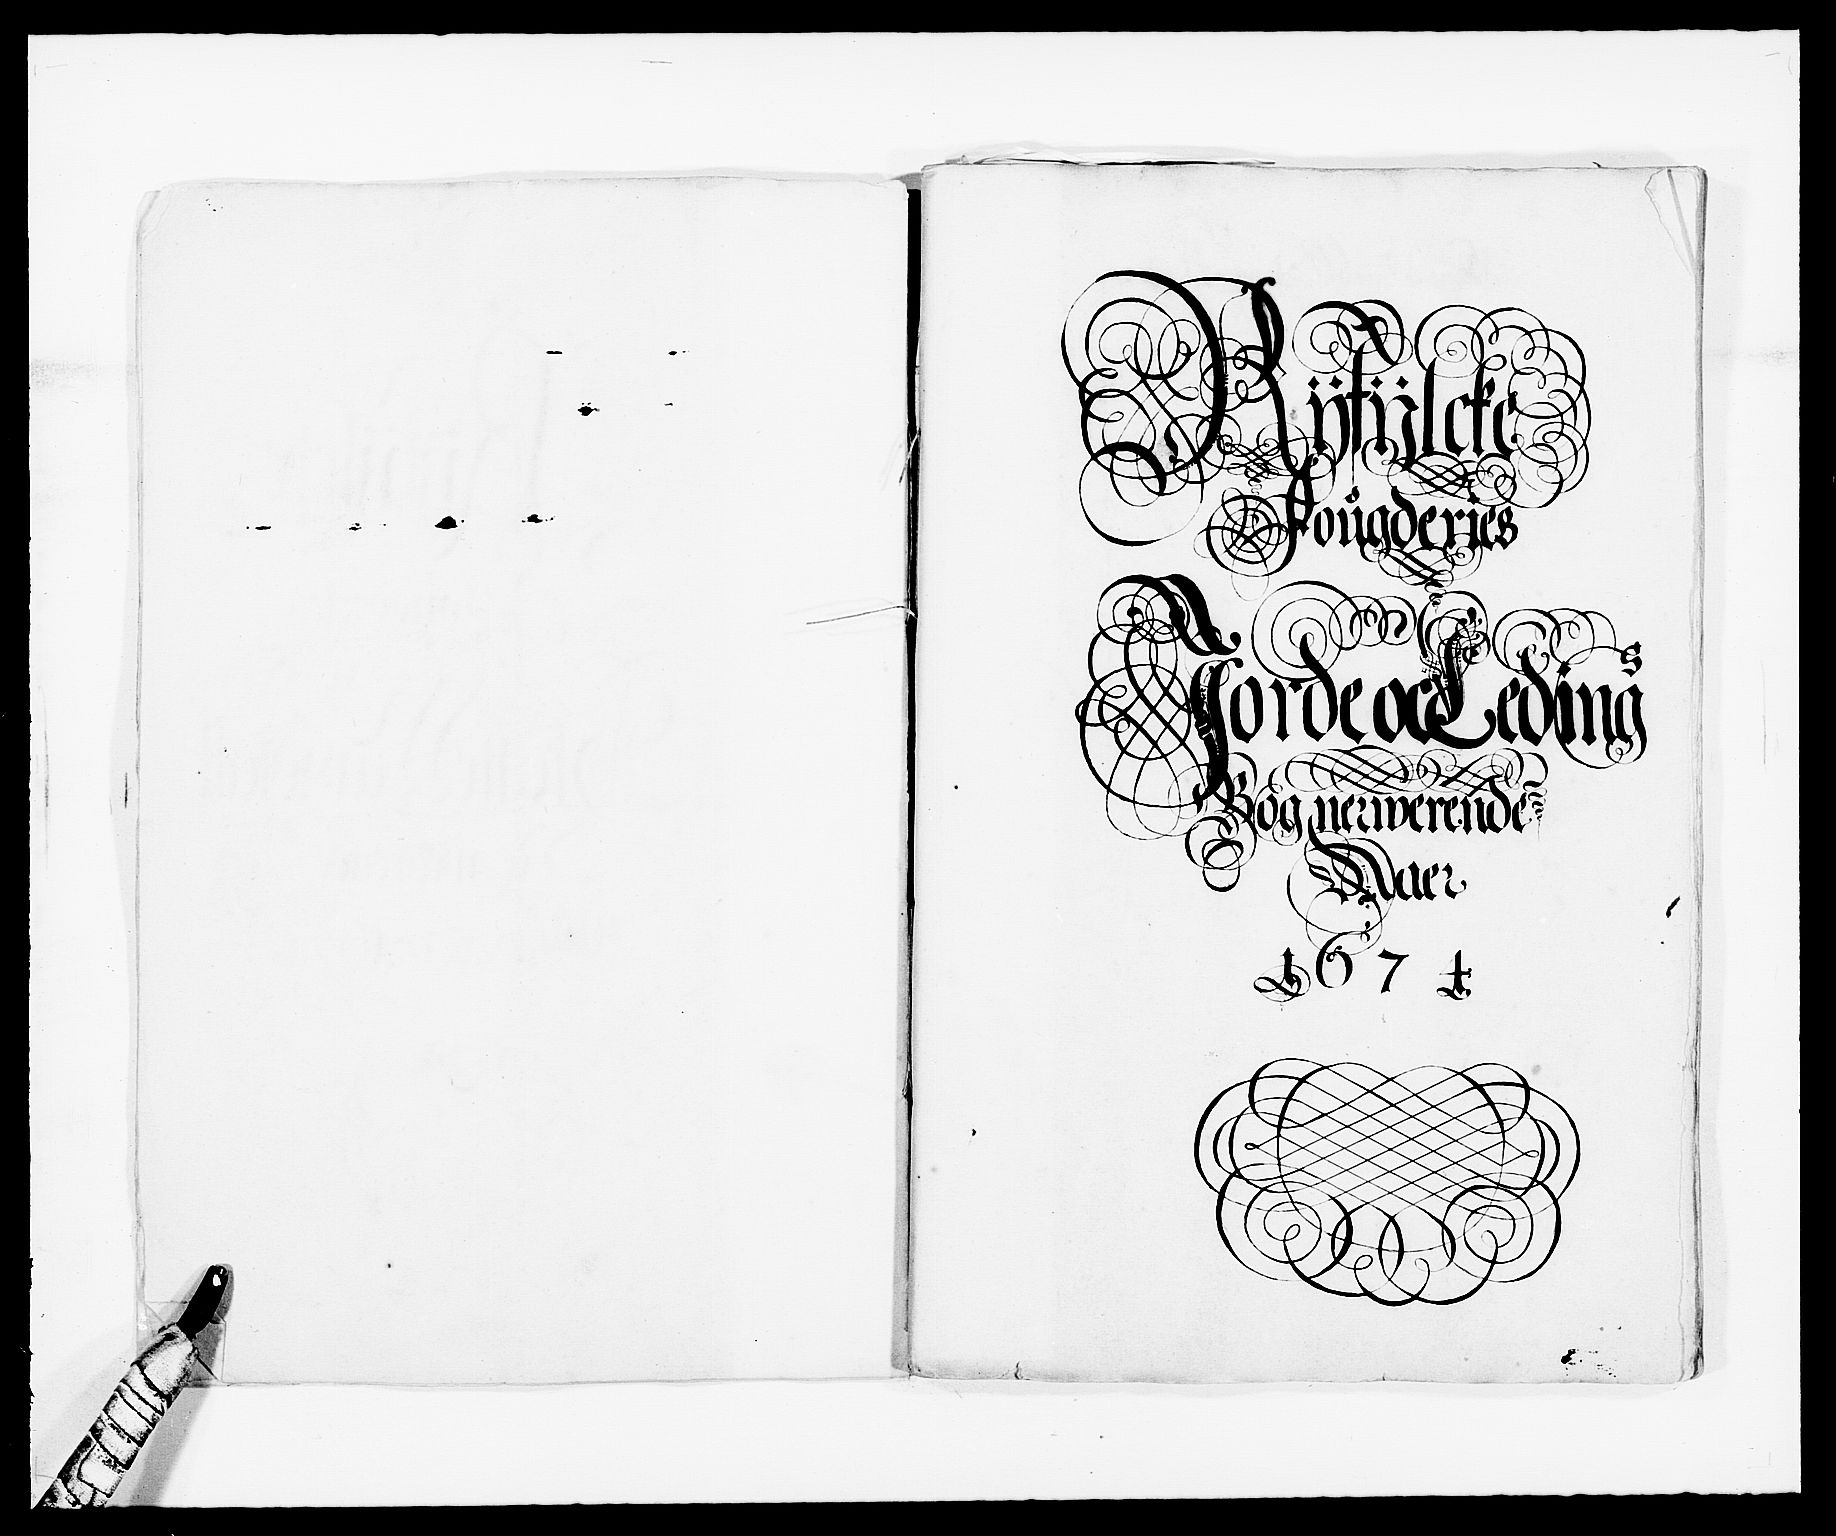 Rÿfÿlcke
Fougderies
Jorde oc Ledings
Bog nerwerende
Aaer
1674